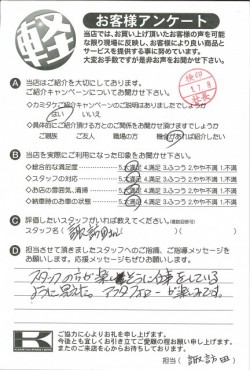 軽 お客様アンケート
当店では、お買い上げ頂いたお客様の声を可能
な限り現場に反映し、お客様により良い商品と
サービスを提供する事に努めています。
大変お手数ですが是非お声をお聞かせ下さい。
A 当店はご紹介を大切にしております。
ご紹介キャンペーンについてお聞かせ下さい
検印
◇カミタケご紹介キャンペーンのご説明はありましたでしょうか
はい いいえ
◇具体的にご紹介頂ける方とのご関係をお聞かせ頂けますでしょうか
ご親族 ご友人 職場の方 機会があれば紹介したい
B 当店を実際にご利用になった印象をお聞かせ下さい
◇総合的な満足度 5.大満足 4.満足 3.ふつう 2.やや不満 1.不満
◇スタッフの対応 5.大満足 4.満足 3.ふつう 2.やや不満 1.不満
◇お店の雰囲気、清掃 5.大満足 4.満足 3.ふつう 2.やや不満 1.不満
◇納車時のお車の状態 5.大満足 4.満足 3.ふつう 2.やや不満 1.不満
C 評価したいスタッフがいれば教えてください。
スタッフ名( 諏訪田さん )( )
D 担当させて頂きましたスタッフへのご指摘、ご指導、応援メッセージを
お願いします。ぜひお願いします。
スタッフの方が楽しそうに仕事をしている
ように見えた。アフタフォローが楽しみです。
K
ご協力に心よりお礼を申し上げます。
今後とも宜しくお引き立てご愛顧の程お願い申し上げます。
またのご来店を心からお待ちしております。
担当( 諏訪田 )